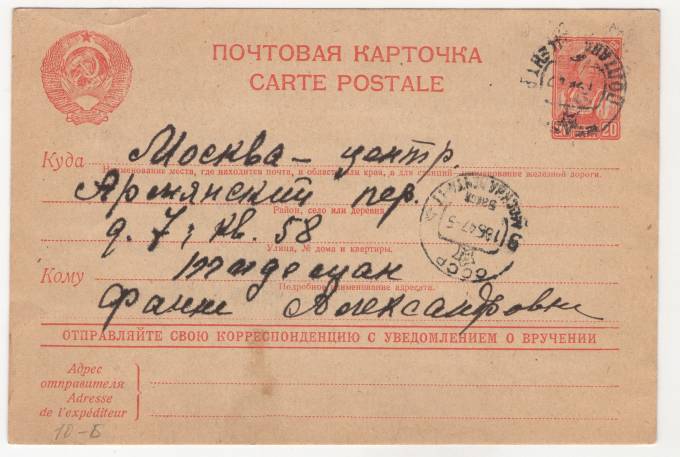 ПОЧТОВАЯ КАРТОЧКА
CARTE POSTALE
20
Куда Москва – центр.
Наименование места, где находится почта, и области или края, а для станций наименование железной дороги.
Армянский пер.
Район, село или деревня
д. 7; кв. 58
Улица, № дома и квартиры.
Кому
Подробное наименование адресата.
Фанни Александровне
ОТПРАВЛЯЙТЕ СВОЮ КОРРЕСПОНДЕНЦИЮ С УВЕДОМЛЕНИЕМ О ВРУЧЕНИИ
Адрес
отправителя
Adresse
de l'expéditeur
10-Б